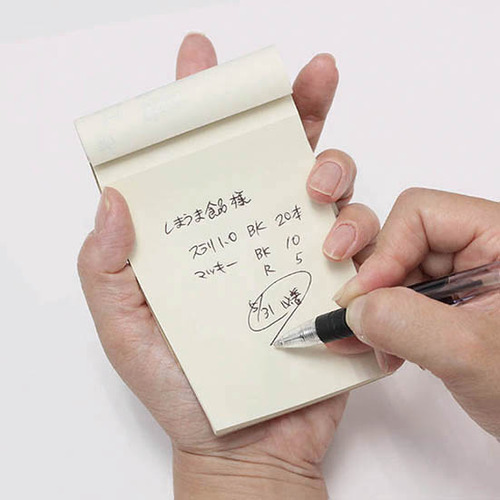 しまうま食品 様
スラリ 1.0 BK 20本
マッキー BK 10
R 5
5/31